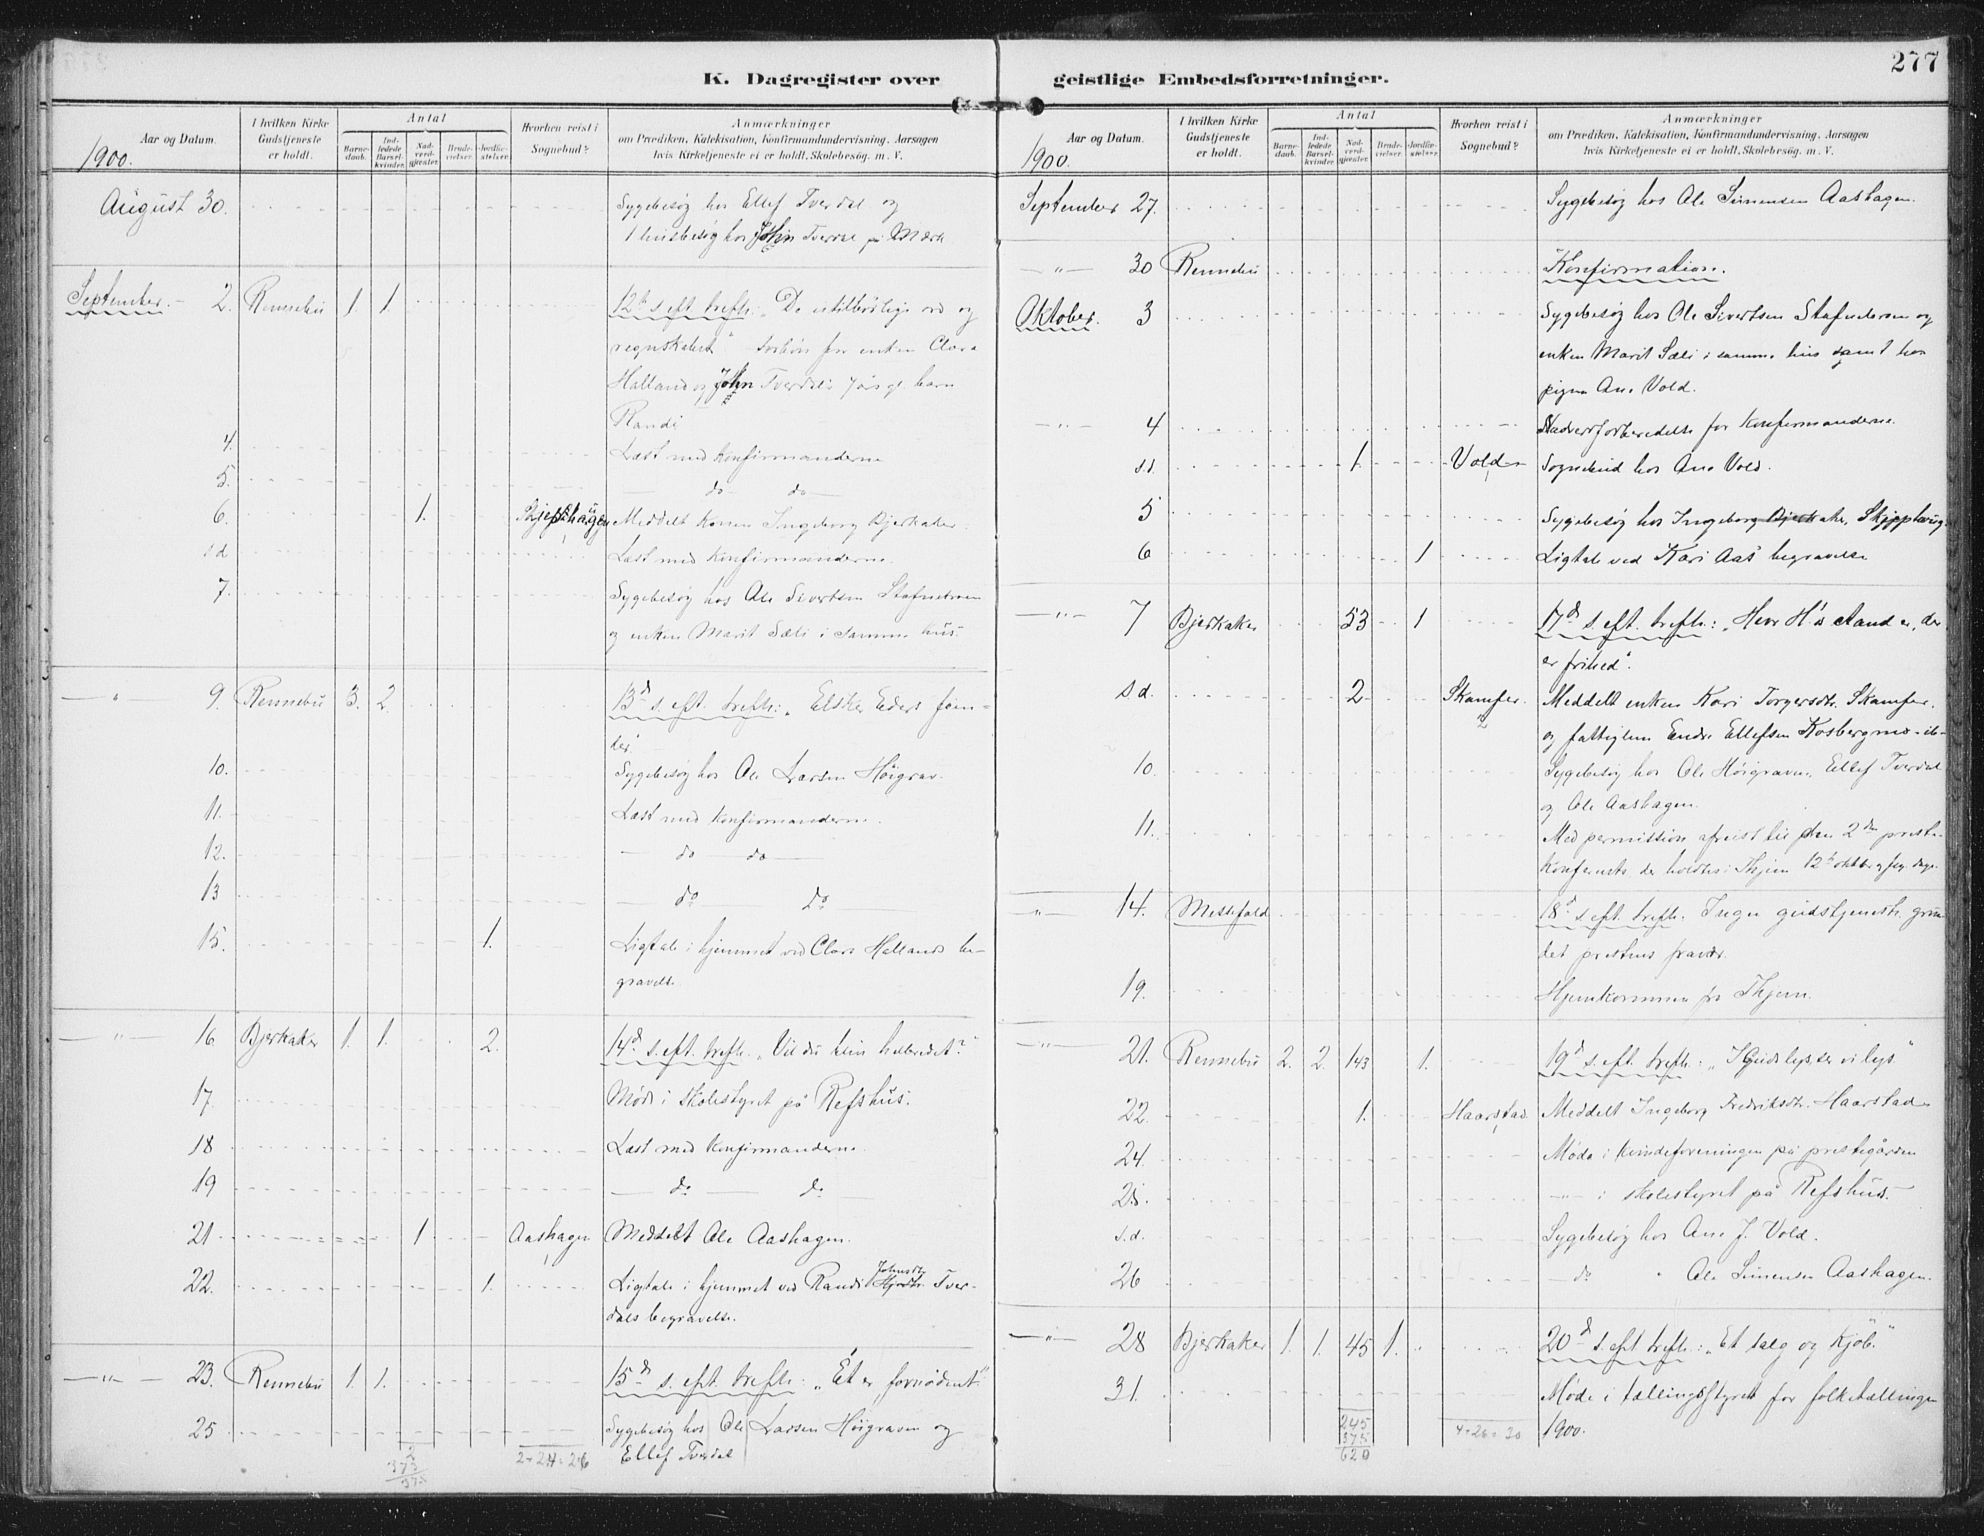 277
K. Dagregister over
geistlige Embedsforretninger.
Aar og Datum.
I hvilken Kirke Gudstjeneste er holdt.
Antal
Barnedaab.
Indledede Barselkvinder.
Nadverdgjester.
Brudevielser.
Jordfæstelser.
Hvorhen reist i Sognebud?
Anmærkninger
om Prædiken, Katekisation, Konfirmandundervisning, Aarsagen
hvis Kirketjeneste ei er holdt, Skolebesøg. m. V.
1900.
August 30. Sygebesøg hos Ellef Tverdal og
1 husbesøg hos John Tverdal på Mærk
September 2. Rennebu 1 1. 12te s. eft. trefh.: „De utilbørlige ord og
regnskabet" forbøn for enken Clara
Halland og John Tverdals barn
Randi
4. Læst med Konfirmanderne
5. do do
6. 1. Meddelt Konen Ingeborg Bjerkaker
s.d. Læst med Konfirmanderne.
7. Sygebesøg hos Ole Sivertsen
og enken Marit Sæli i samme hus.
" 9. Rennebu 3. 2. 13d s. eft. trefh.: „Elsker Eders fien-
der"
10. Sygebesøg hos Ole Larsen Höigrav.
11. Læst med Konfirmanderne.
12. do do
13 do Do
15. 1. Ligtale i hjemmet ved Clara Hallands be-
gravelse
" 16 Bjerkaker 1. 1. 2. 14d s. eft. trefh. „Vil du blive helbredet?"
17. Møde i skolestyret på Refshus.
18 Læst med Konfirmanderne.
19 do do
21 1 Aashagen Meddelt Ole Aashagen.
22. 1. Ligtale i hjemmet ved Randi Johnsdtr. Tver-
dals begravelse.
" 23. Rennebu 1. 1. 15d s. eft. trefh.: „Et er fornødent."
25 Sygebesøg hos Ole Larsen Höigraven og
Ellef Tverdal
2
373
375
2+24=26
Aar og Datum.
I hvilken Kirke Gudstjeneste er holdt.
Antal
Barnedaab.
Indledede Barselkvinder.
Nadverdgjester.
Brudevielser.
Jordfæstelser.
Hvorhen reist i Sognebud?
Anmærkninger
om Prædiken, Katekisation, Konfirmandundervisning, Aarsagen
hvis Kirketjeneste ei er holdt, Skolebesøg. m. V.
1900.
September 27. Sygebesøg hos Ole Simensen Aashagen.
" 30 Rennebu Konfirmation.
Oktober. 3 Sygebesøg hos Ole Sivertsen og
enken Marit Sæli i samme hus samt hos
pigen Ane Vold.
" 4 Nadverforberedelse for Konfirmanderne.
s.d. 1. Vold Sognebud hos Ane Vold.
5 Sygebesøg hos Ingeborg Bjerkaker,
6 1 Ligtale ved Kari Aas begravelse
" 7 Bjerkaker 53 1 17d s. eft. trefh.: „Hvor H's Aand er, der
er frihed".
s.d. 2 Skamfer. 2 Meddelt enken Kari Torgersdtr. Skamfer.
og fattiglem Endre Ellefsen
10. Sygebesøg hos Ole Höigraven, Ellef Tverdal
og Ole Aashagen.
11. Med permission afreist til den 2den preste-
konferents der holdtes i Thjem 12te oktber
" 14. Messefald 18d s. eft. trefh. Ingen gudstjeneste grun
det prestens fravær.
19. Hjemkommen fra Thjem.
" 21. Rennebu 2. 2. 143 1. 19d s. eft. trefh.: „I Guds lys ser vi lys"
22. 1. Haarstad Meddelt Ingeborg Fredriksdtr. Haarstad
24. Møde i kvindeforeningen på prestegården
25. " i skolestyret på Refshus.
s.d. Sygebesøg hos Ane J. Vold.
26 do " Ole Simensen Aashagen.
" 28 Bjerkaker 1. 1. 45 1. 20d s. eft. trefh.: „Et salg og Kjøb."
31. Møde i tællingsstyret for folketællingen
1900.
245
375
620
4+26=30